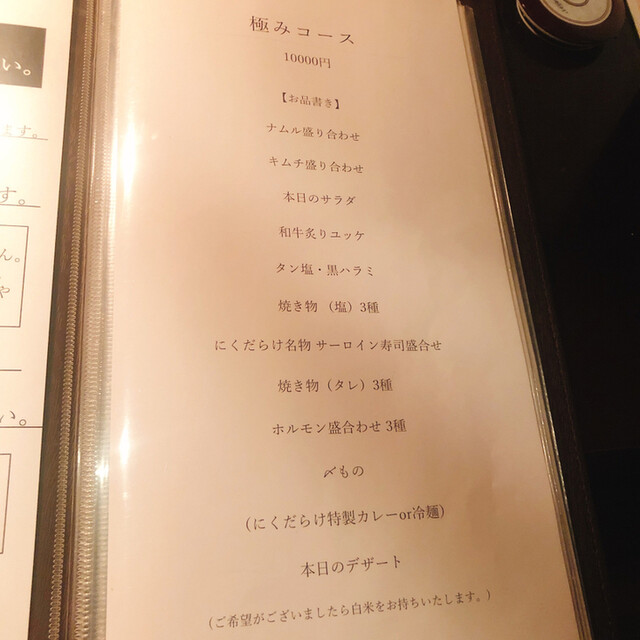 極みコース
10000円
【お品書き】
ナムル盛り合わせ
キムチ盛り合わせ
本日のサラダ
和牛炙りユッケ
タン塩・黒ハラミ
焼き物 （塩）3種
にくだらけ名物 サーロイン寿司盛合せ
焼き物（タレ）3種
ホルモン盛合わせ 3種
〆もの
（にくだらけ特製カレーor冷麺）
本日のデザート
（ご希望がございましたら白米をお持ちいたします。）
い。
ます。
す。
ん。
や
い。